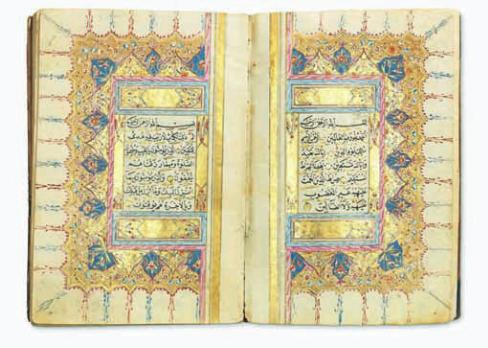 بسم الله الرحمن الرحيم
الحمد لله رب العالمين الرحمن
الرحيم ملك يوم الدين اياك نعبد
واياك نستعين اهدنا الصراط
المستقيم صراط الذين انعمت
عليهم غير المغضوب
عليهم ولا الضالين
بسم الله الرحمن الرحيم
الم ذلك الكتاب لا ريب فيه هدى
للمتقين الذين يؤمنون بالغيب ويقيمون
الصلوة ومما رزقناهم
ينفقون والذين يؤمنون بما
انزل اليك وما انزل من قبلك
وبالاخرة هم يوقنون